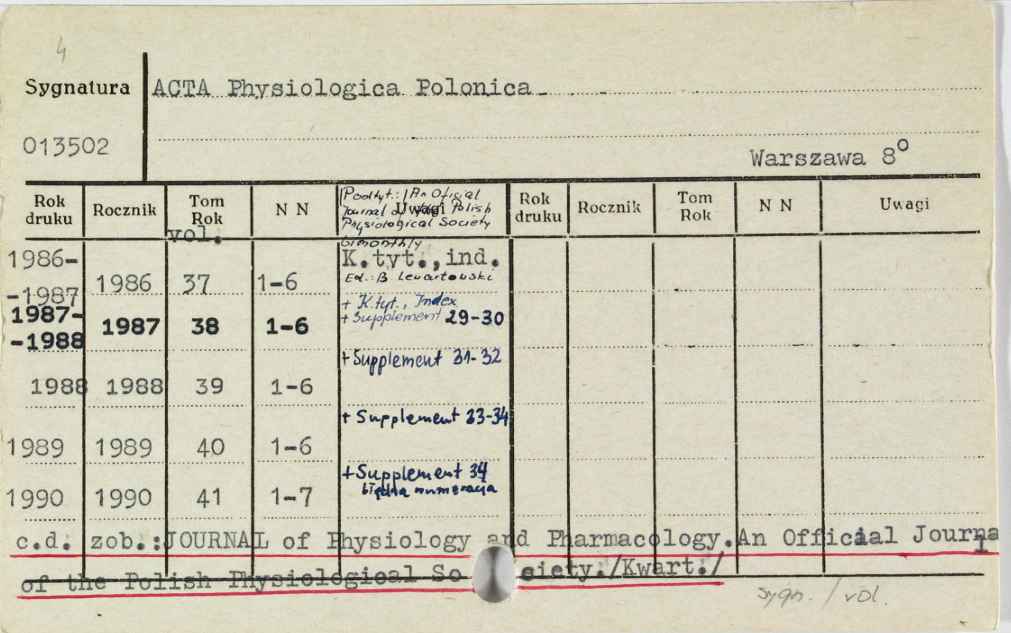 4
Sygnatura ACTA Physiologica Polonica
013502
Warszawa 8°
Rok druku Rocznik Tom Rok N N Uwagi Rok druku Rocznik Tom Rok N N Uwagi
Podtyt.: /An Official
Journal of Polish
Physiological Society
bimonthly
vol.
K.tyt.,ind.
Ed.: B Lewartowski
1986-
-1987 1986 37 1-6
+ K.tyt., Index
+ Supplement 29-30
1987-
-1988 1987 38 1-6
+ Supplement 31-32
1988 1988 39 1-6
+ Supplement 33-34
1989 1989 40 1-6
+ Supplement 34
błędna numeracja
1990 1990 41 1-7
c.d. zob.:JOURNAL of Physiology and Pharmacology.An Official Journal
of the Polish Physiological So ciety./Kwart./
sygn. / vol.